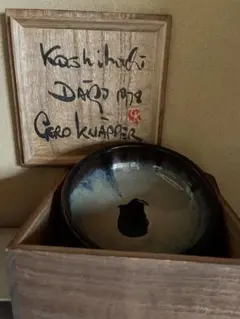 Kashibachi
DAigo 1978
GERD KNÄPPER